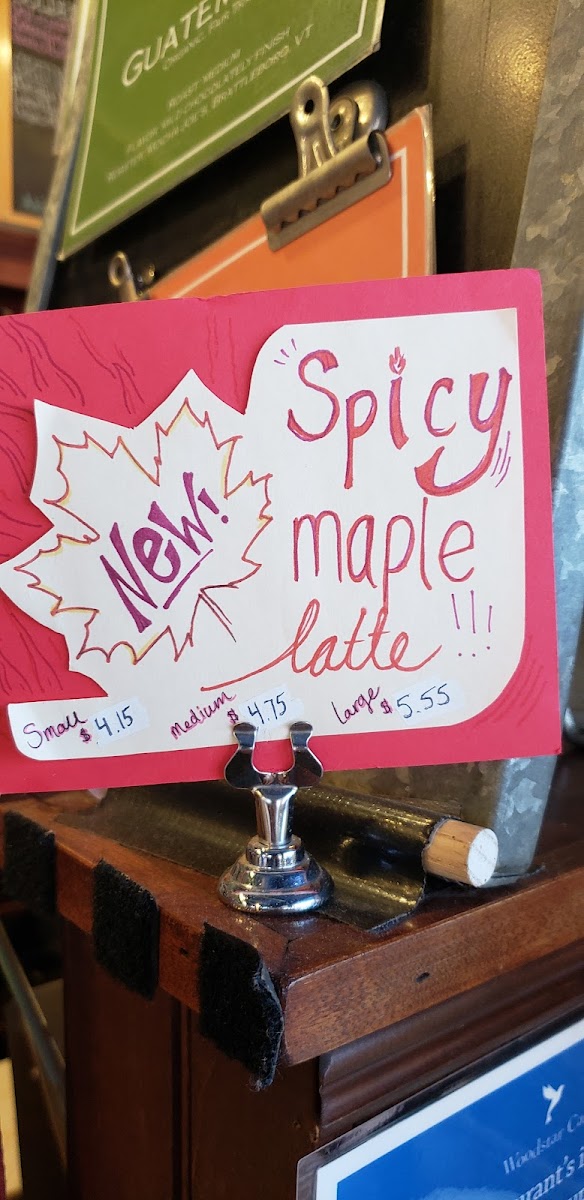 GUATE
ORGANIC, FAIR TR
ROAST: MEDIUM
FLAVOR: MILD CHOCOLATELY FINISH
ROASTER: MOCHA JOE'S, BRATTLEBORO, VT
New!
Spicy
maple
latte!!!
Small $4.15
medium $4.75
large $5.55
Woodstar Ca
rant's i